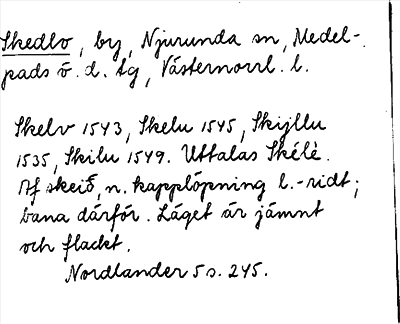 Skedlo, by, Njurunda sn, Medel-
pads ö. d. tg, Västernorrl. l.
Skelv 1543, Skelu 1545, Skijllu
1535, Skilu 1549. Uttalas Skélè.
Af skeið, n. kapplöpning l. -ridt;
bana därför. Läget är jämnt
och flackt.
Nordlander 5 s. 245.